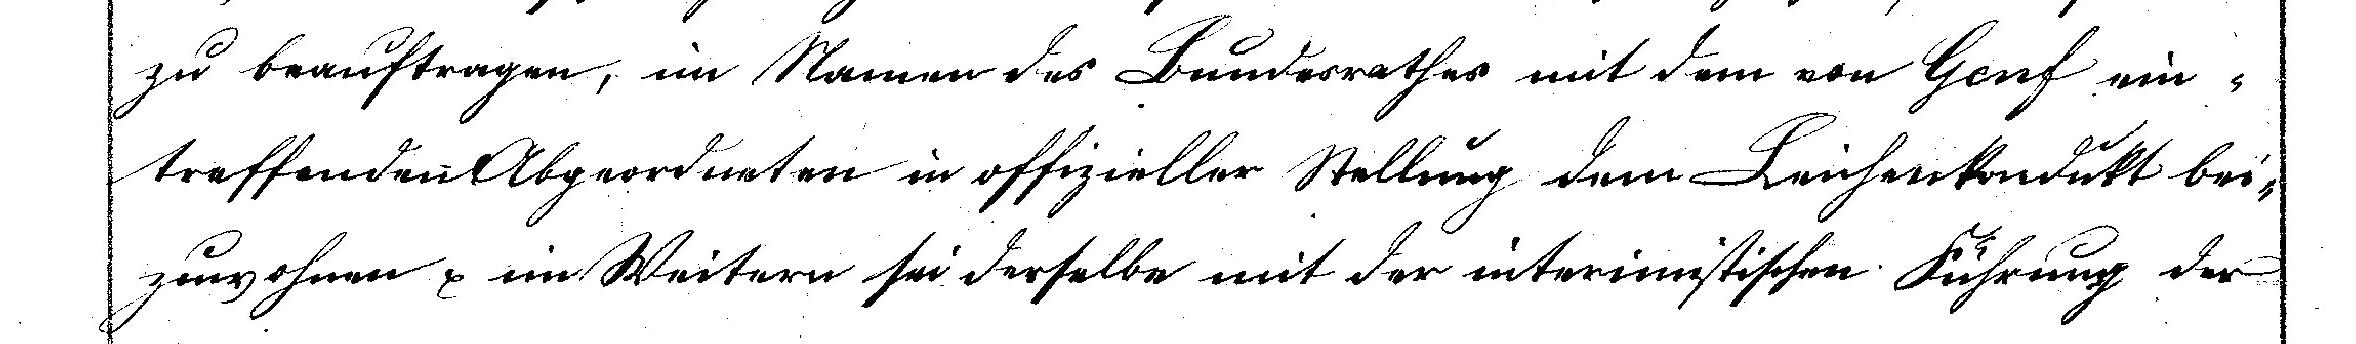 zu beauftragen, im Namen des Bundesrathes mit dem von Genf ein-
treffenden Abgeordneten in offizieller Stellung dem Leichenkondukt bei-
zuwohnen & im Weitern sei derselbe mit der interimistischen Führung der